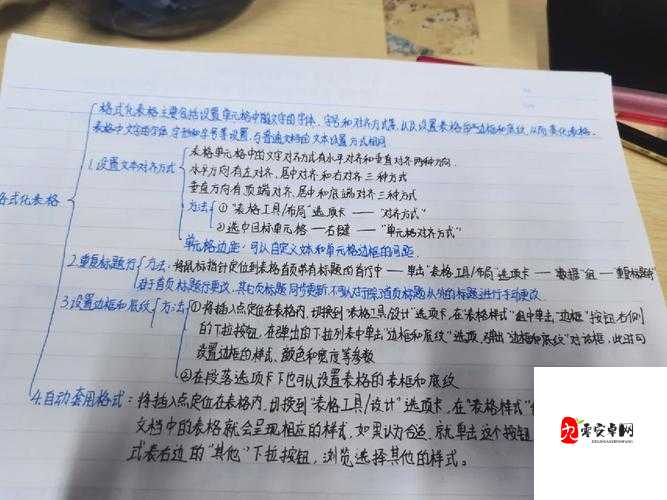 格式化表格主要包括设置单元格中的文字的字体、字号和对齐方式等,以及设置表格的边框和底纹,从而美化表格。
表格中文字的字体、字型和字号等设置,与普通文档的文本设置方式相同
格式化表格
1.设置文本对齐方式
表格单元格中的文字对齐方式有水平对齐和垂直对齐两种方向.
水平方向有左对齐、居中对齐和右对齐三种方式
垂直方向有顶端对齐、居中和底端对齐三种方式
方法:①"表格工具/布局"选项卡 —— "对齐方式"
②选中目标单元格 — 右键 —— "单元格对齐方式"
单元格边距:可以自定义文本和单元格边框的间距.
2.重复标题行
方法:将鼠标指针定位到表格首页带有标题的首行中 — 单击"表格工具/布局"选项卡 — "数据"组 — "重复标题行"
若首页标题行更改,其它页标题同步更新,不可以对除了首页标题以外的标题进行手动更改.
3.设置边框和底纹
方法:①将插入点定位在表格内,切换到"表格工具/设计"选项卡,在"表格样式"组中单击"边框"按钮右侧
的下拉按钮,在弹出的下拉列表中单击"边框和底纹"选项,弹出"边框和底纹"对话框,此时可
设置边框的样式、颜色和宽度等参数
②在段落选项卡下也可以设置表格的表框和底纹
4.自动套用格式:将插入点定位在表格内,切换到"表格工具/设计"选项卡,在"表格样式"
文档中的表格就会呈现相应的样式,如果认为合适,就单击这个按钮
式表右边的"其他"下拉按钮,浏览选择其他的样式。
零安卓网